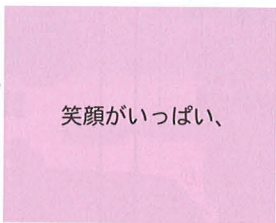 笑顔がいっぱい、